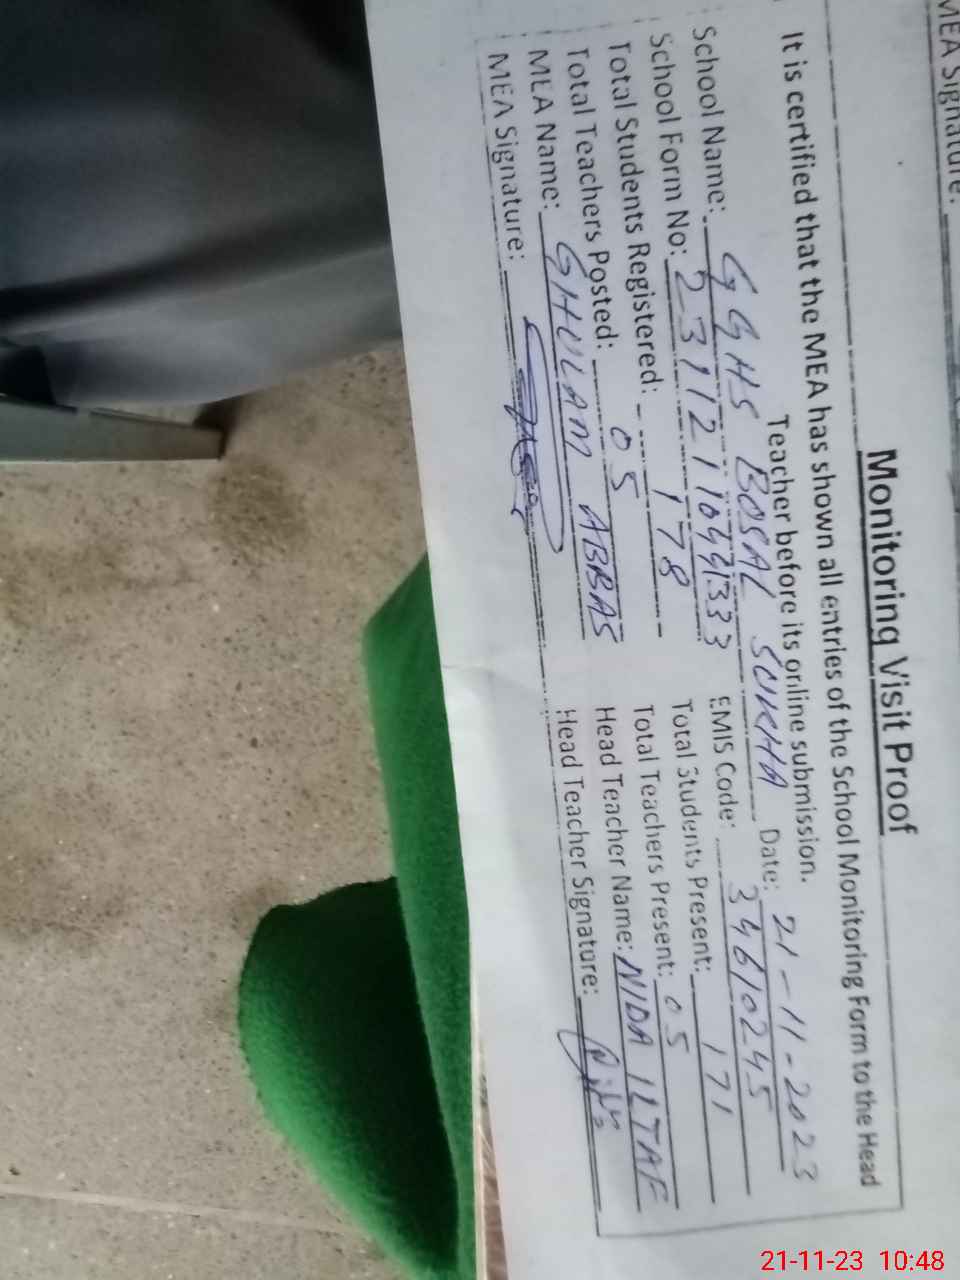 MEA Signature:
Monitoring Visit Proof
It is certified that the MEA has shown all entries of the School Monitoring Form to the Head
Teacher before its online submission.
School Name: GGHS BOSAL SUKHA Date: 21-11-2023
School Form No: EMIS Code: 34610245
Total Students Registered: 178 Total Students Present: 171
Total Teachers Posted: 05 Total Teachers Present: 05
MEA Name: GHULAM ABBAS Head Teacher Name: NIDA ILTAF
MEA Signature: Head Teacher Signature:
21-11-23 10:48